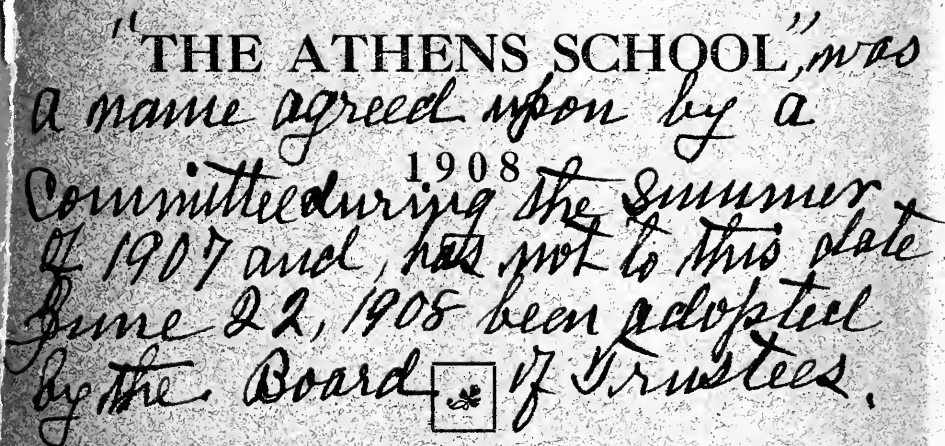 "THE ATHENS SCHOOL", was
a name agreed upon by a
1908
Committee during the Summer
of 1907 and, has not to this date
June 22, 1908 been adopted
by the Board of Trustees.